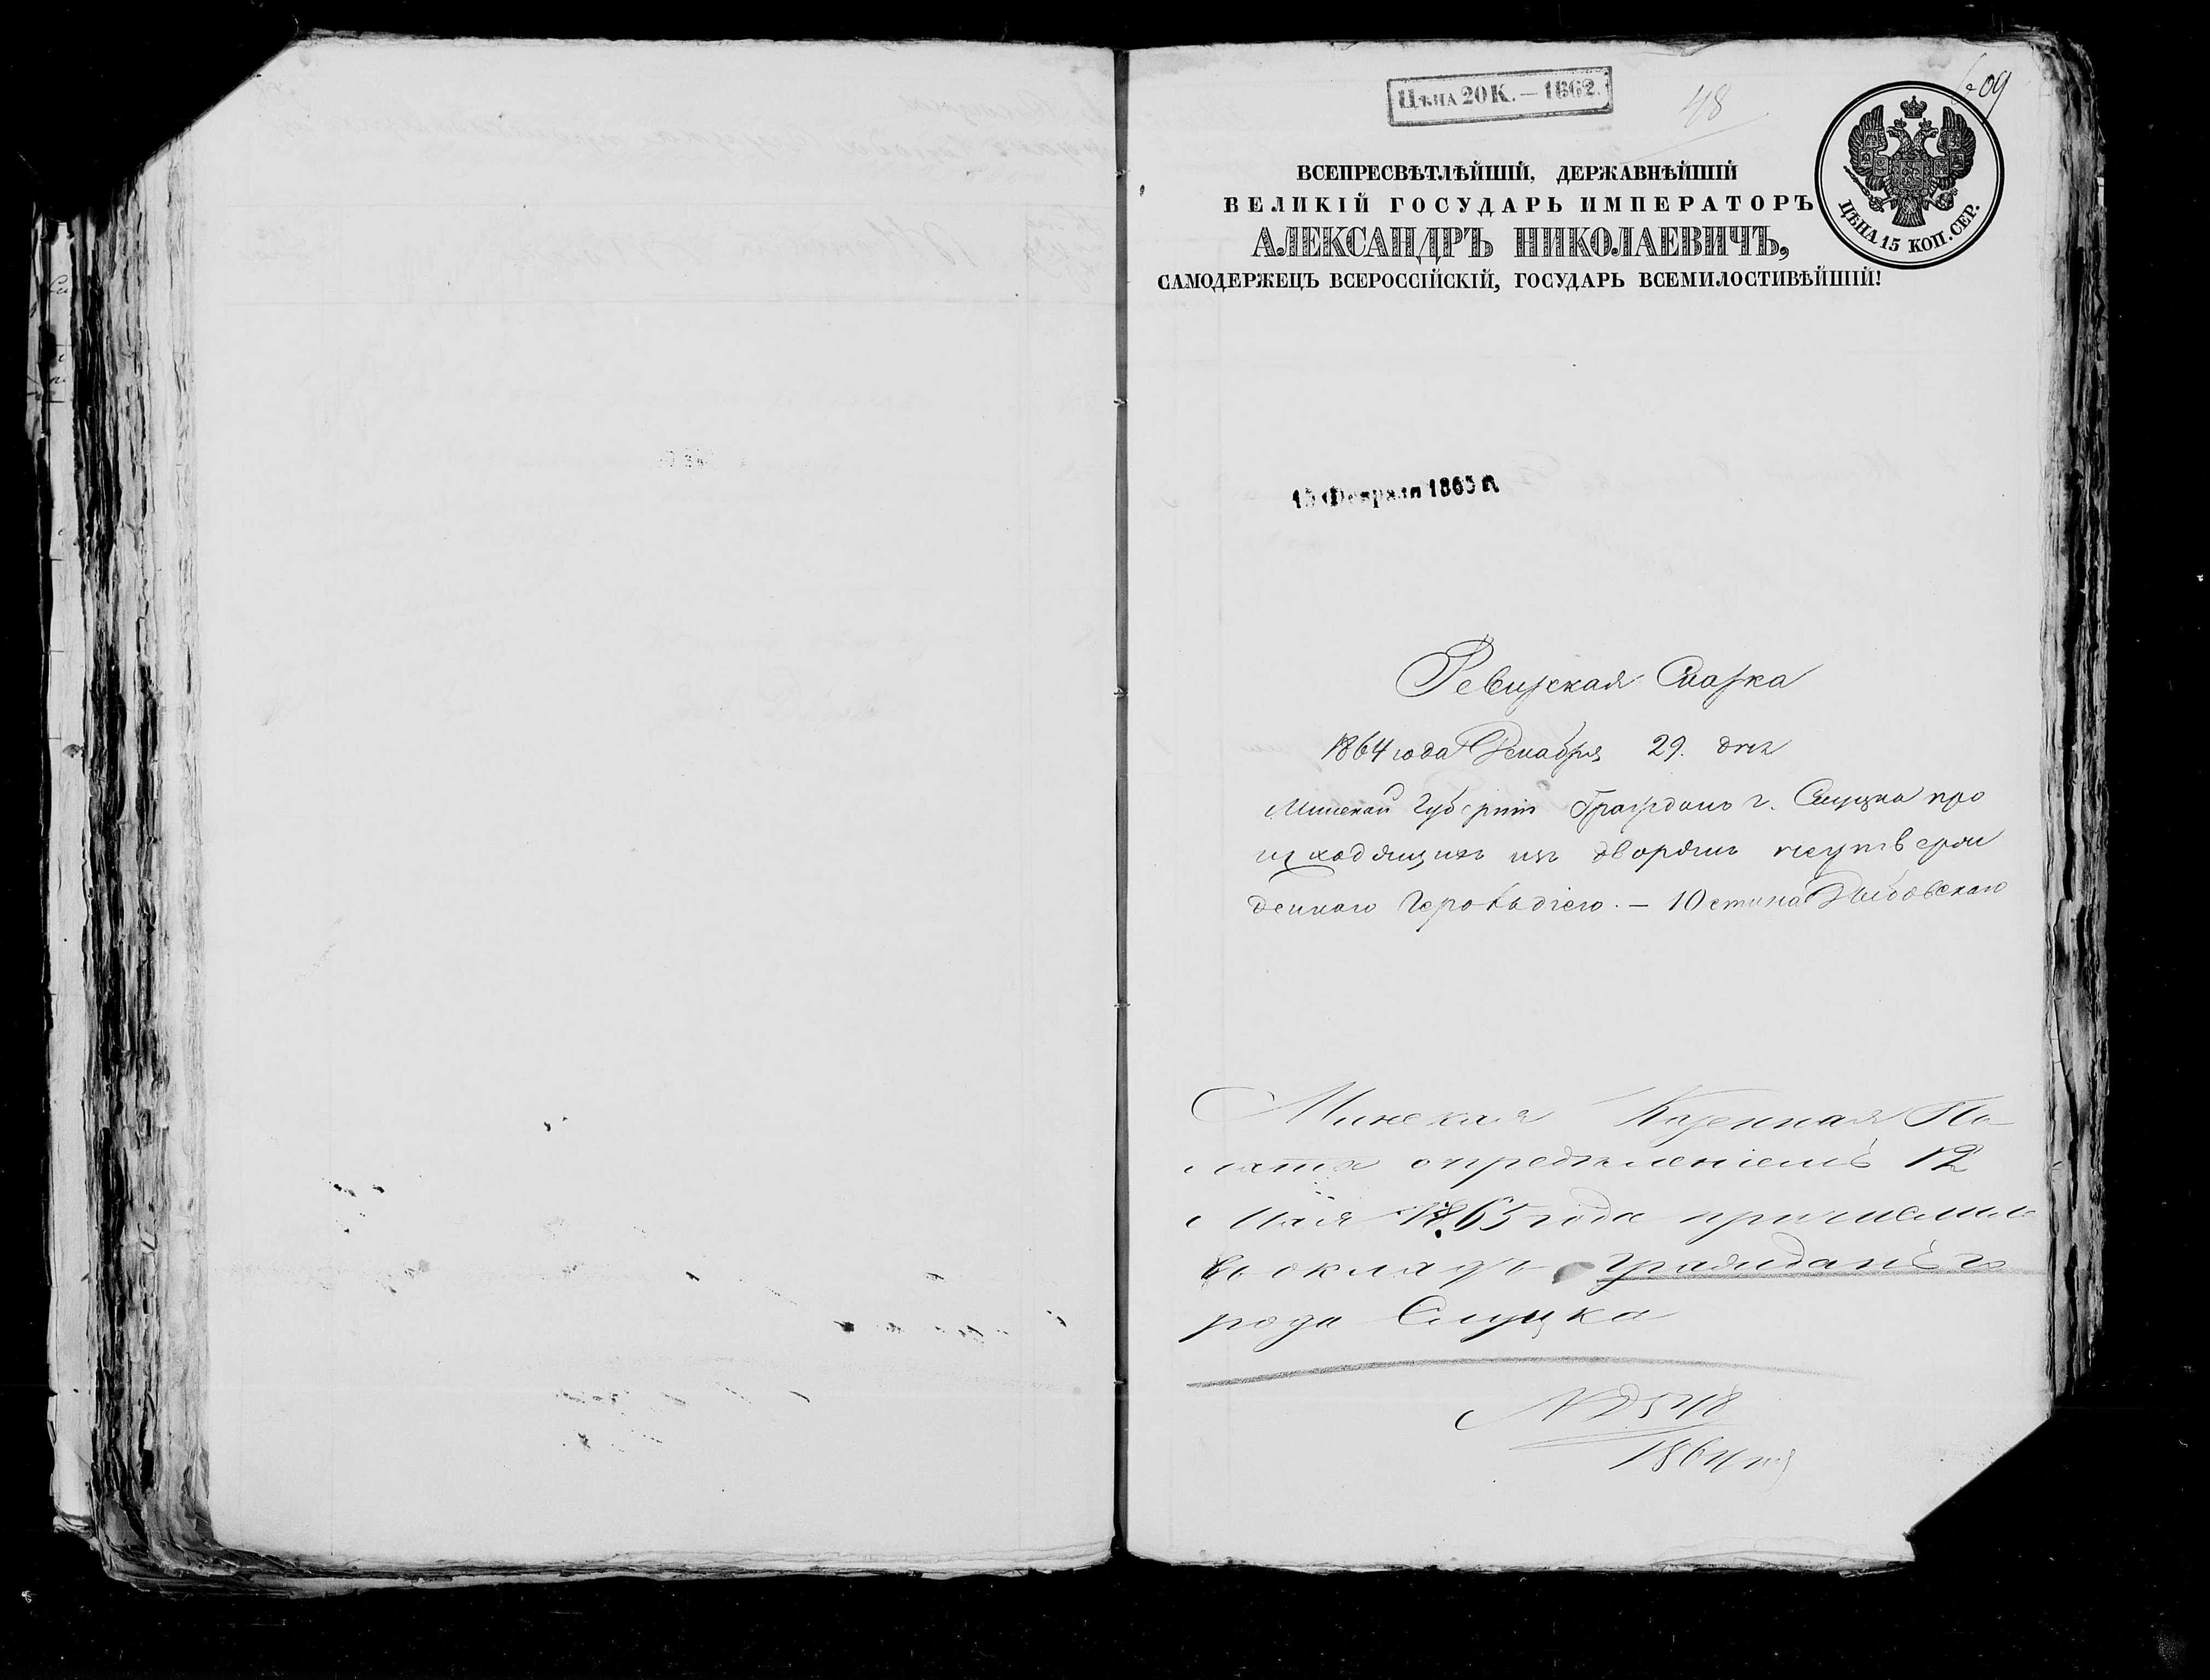 Цѣна 20 К. — 1862.
48
609
ВСЕПРЕСВѢТЛѢЙШІЙ, ДЕРЖАВНѢЙШІЙ
ВЕЛИКІЙ ГОСУДАРЬ ИМПЕРАТОРЪ
АЛЕКСАНДРЪ НИКОЛАЕВИЧЪ,
САМОДЕРЖЕЦЪ ВСЕРОССІЙСКІЙ, ГОСУДАРЬ ВСЕМИЛОСТИВѢЙШІЙ!
ЦѢНА 15 КОП. СЕР.
Февраля 1865 г.
Ревизская Сказка
1864 года Декабря 29. дня
Минской Губерніи Гражданъ г. Слуцка про
изходящихъ изъ дворянъ неутверж
деннаго Герольдіею. — Юстина
Минская Казенная Па-
лата опредѣленіемъ 12
Мая 1865 года причислила
въ окладъ гражданъ го
рода Слуцка
1864